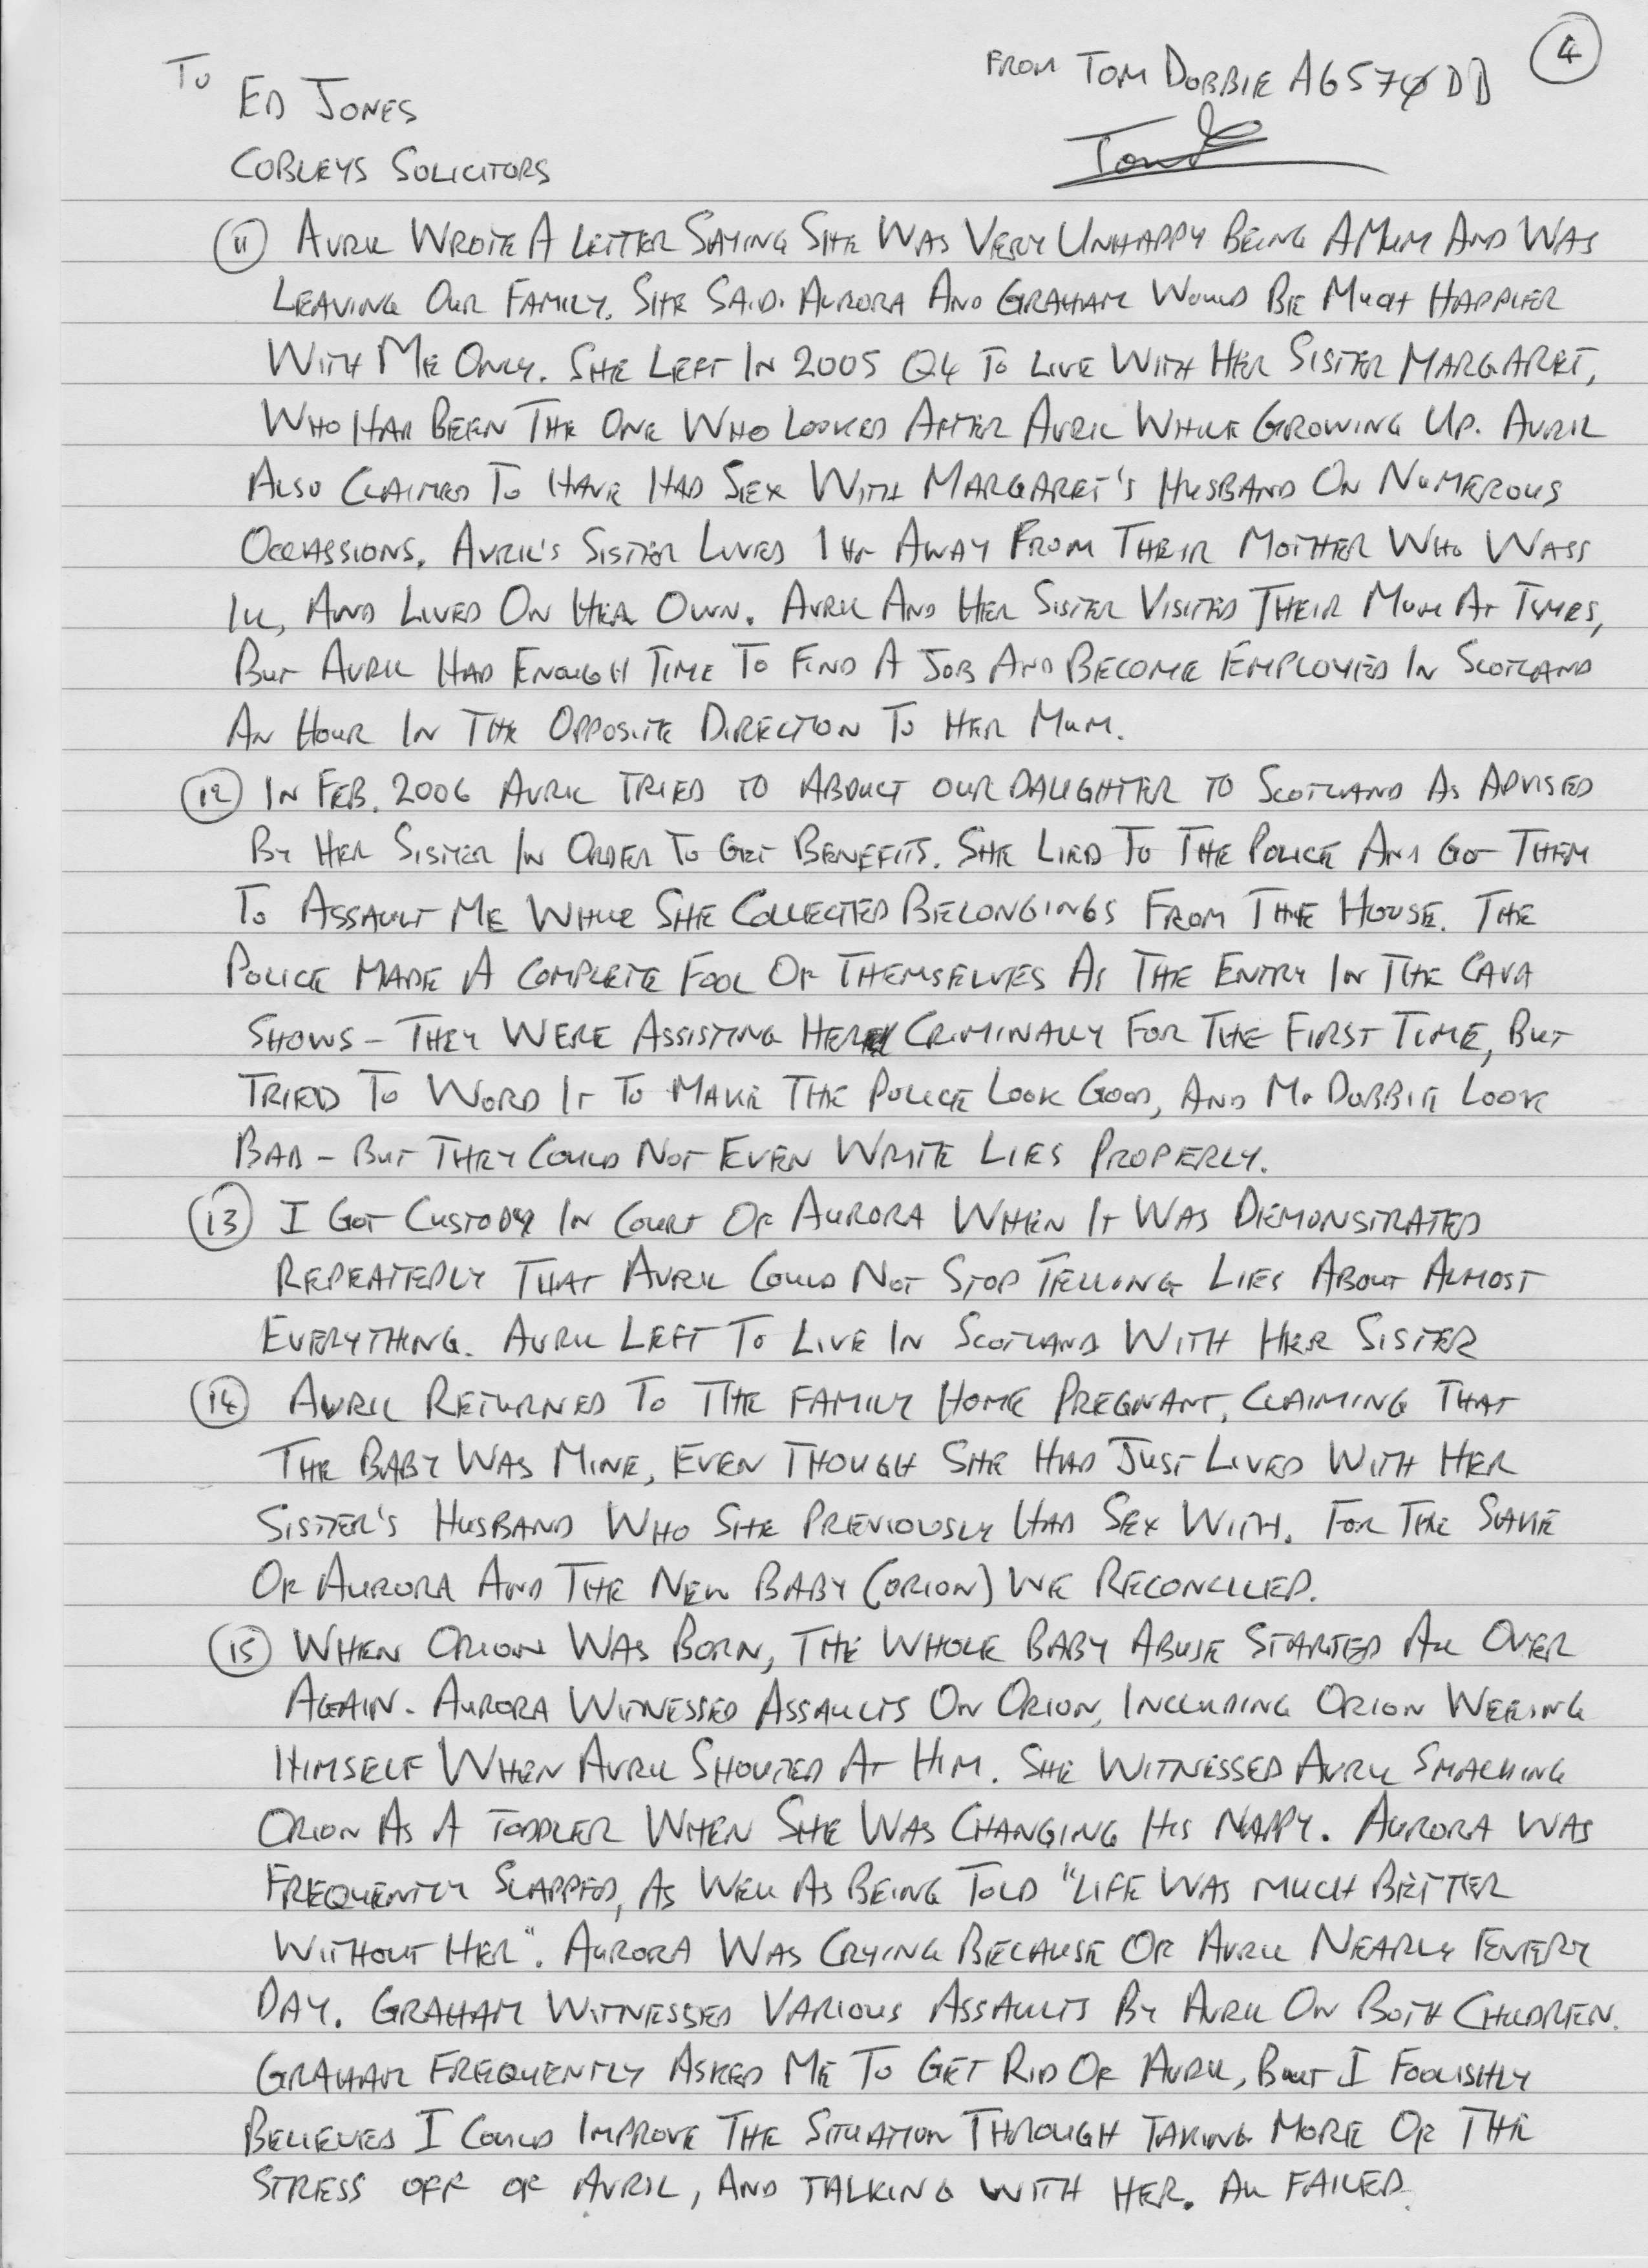 4
To
FROM TOM DOBBIE A6570DD
ED JONES
COBLEYS SOLICITORS
11 AVRIL WROTE A LETTER SAYING SHE WAS VERY UNHAPPY BEING A MUM AND WAS
LEAVING OUR FAMILY. SHE SAID. AURORA AND GRAHAM WOULD BE MUCH HAPPIER
WITH ME ONLY. SHE LEFT IN 2005 Q4 TO LIVE WITH HER SISTER MARGARET,
WHO HAD BEEN THE ONE WHO LOOKED AFTER AVRIL WHILE GROWING UP. AVRIL
ALSO CLAIMED TO HAVE HAD SEX WITH MARGARET'S HUSBAND ON NUMEROUS
OCCASSIONS. AVRIL'S SISTER LIVED 1 HR AWAY FROM THEIR MOTHER WHO WASS
ILL, AND LIVED ON HER OWN. AVRIL AND HER SISTER VISITED THEIR MUM AT TIMES,
BUT AVRIL HAD ENOUGH TIME TO FIND A JOB AND BECOME EMPLOYED IN SCOTLAND
AN HOUR IN THE OPPOSITE DIRECTION TO HER MUM.
12 IN FEB. 2006 AVRIL TRIED TO ABDUCT OUR DAUGHTER TO SCOTLAND AS ADVISED
BY HER SISTER IN ORDER TO GET BENEFITS. SHE LIED TO THE POLICE AND GOT THEM
TO ASSAULT ME WHILE SHE COLLECTED BELONGINGS FROM THE HOUSE. THE
POLICE MADE A COMPLETE FOOL OF THEMSELVES AS THE ENTRY IN THE CAVA
SHOWS - THEY WERE ASSISTING HER CRIMINALLY FOR THE FIRST TIME, BUT
TRIED TO WORD IT TO MAKE THE POLICE LOOK GOOD, AND MR DOBBIE LOOK
BAD - BUT THEY COULD NOT EVEN WRITE LIES PROPERLY.
13 I GOT CUSTODY IN COURT OF AURORA WHEN IT WAS DEMONSTRATED
REPEATEDLY THAT AVRIL COULD NOT STOP TELLING LIES ABOUT ALMOST
EVERYTHING. AVRIL LEFT TO LIVE IN SCOTLAND WITH HER SISTER
14 AVRIL RETURNED TO THE FAMILY HOME PREGNANT, CLAIMING THAT
THE BABY WAS MINE, EVEN THOUGH SHE HAD JUST LIVED WITH HER
SISTER'S HUSBAND WHO SHE PREVIOUSLY HAD SEX WITH. FOR THE SAKE
OF AURORA AND THE NEW BABY (ORION) WE RECONCILED.
15 WHEN ORION WAS BORN, THE WHOLE BABY ABUSE STARTED ALL OVER
AGAIN. AURORA WITNESSED ASSAULTS ON ORION, INCLUDING ORION WEEING
HIMSELF WHEN AVRIL SHOUTED AT HIM. SHE WITNESSED AVRIL SMACKING
ORION AS A TODDLER WHEN SHE WAS CHANGING HIS NAPPY. AURORA WAS
FREQUENTLY SLAPPED, AS WELL AS BEING TOLD "LIFE WAS MUCH BETTER
WITHOUT HER". AURORA WAS CRYING BECAUSE OF AVRIL NEARLY EVERY
DAY. GRAHAM WITNESSED VARIOUS ASSAULTS BY AVRIL ON BOTH CHILDREN.
GRAHAM FREQUENTLY ASKED ME TO GET RID OF AVRIL, BUT I FOOLISHLY
BELIEVED I COULD IMPROVE THE SITUATION THROUGH TAKING MORE OF THE
STRESS OFF OF AVRIL, AND TALKING WITH HER. ALL FAILED.